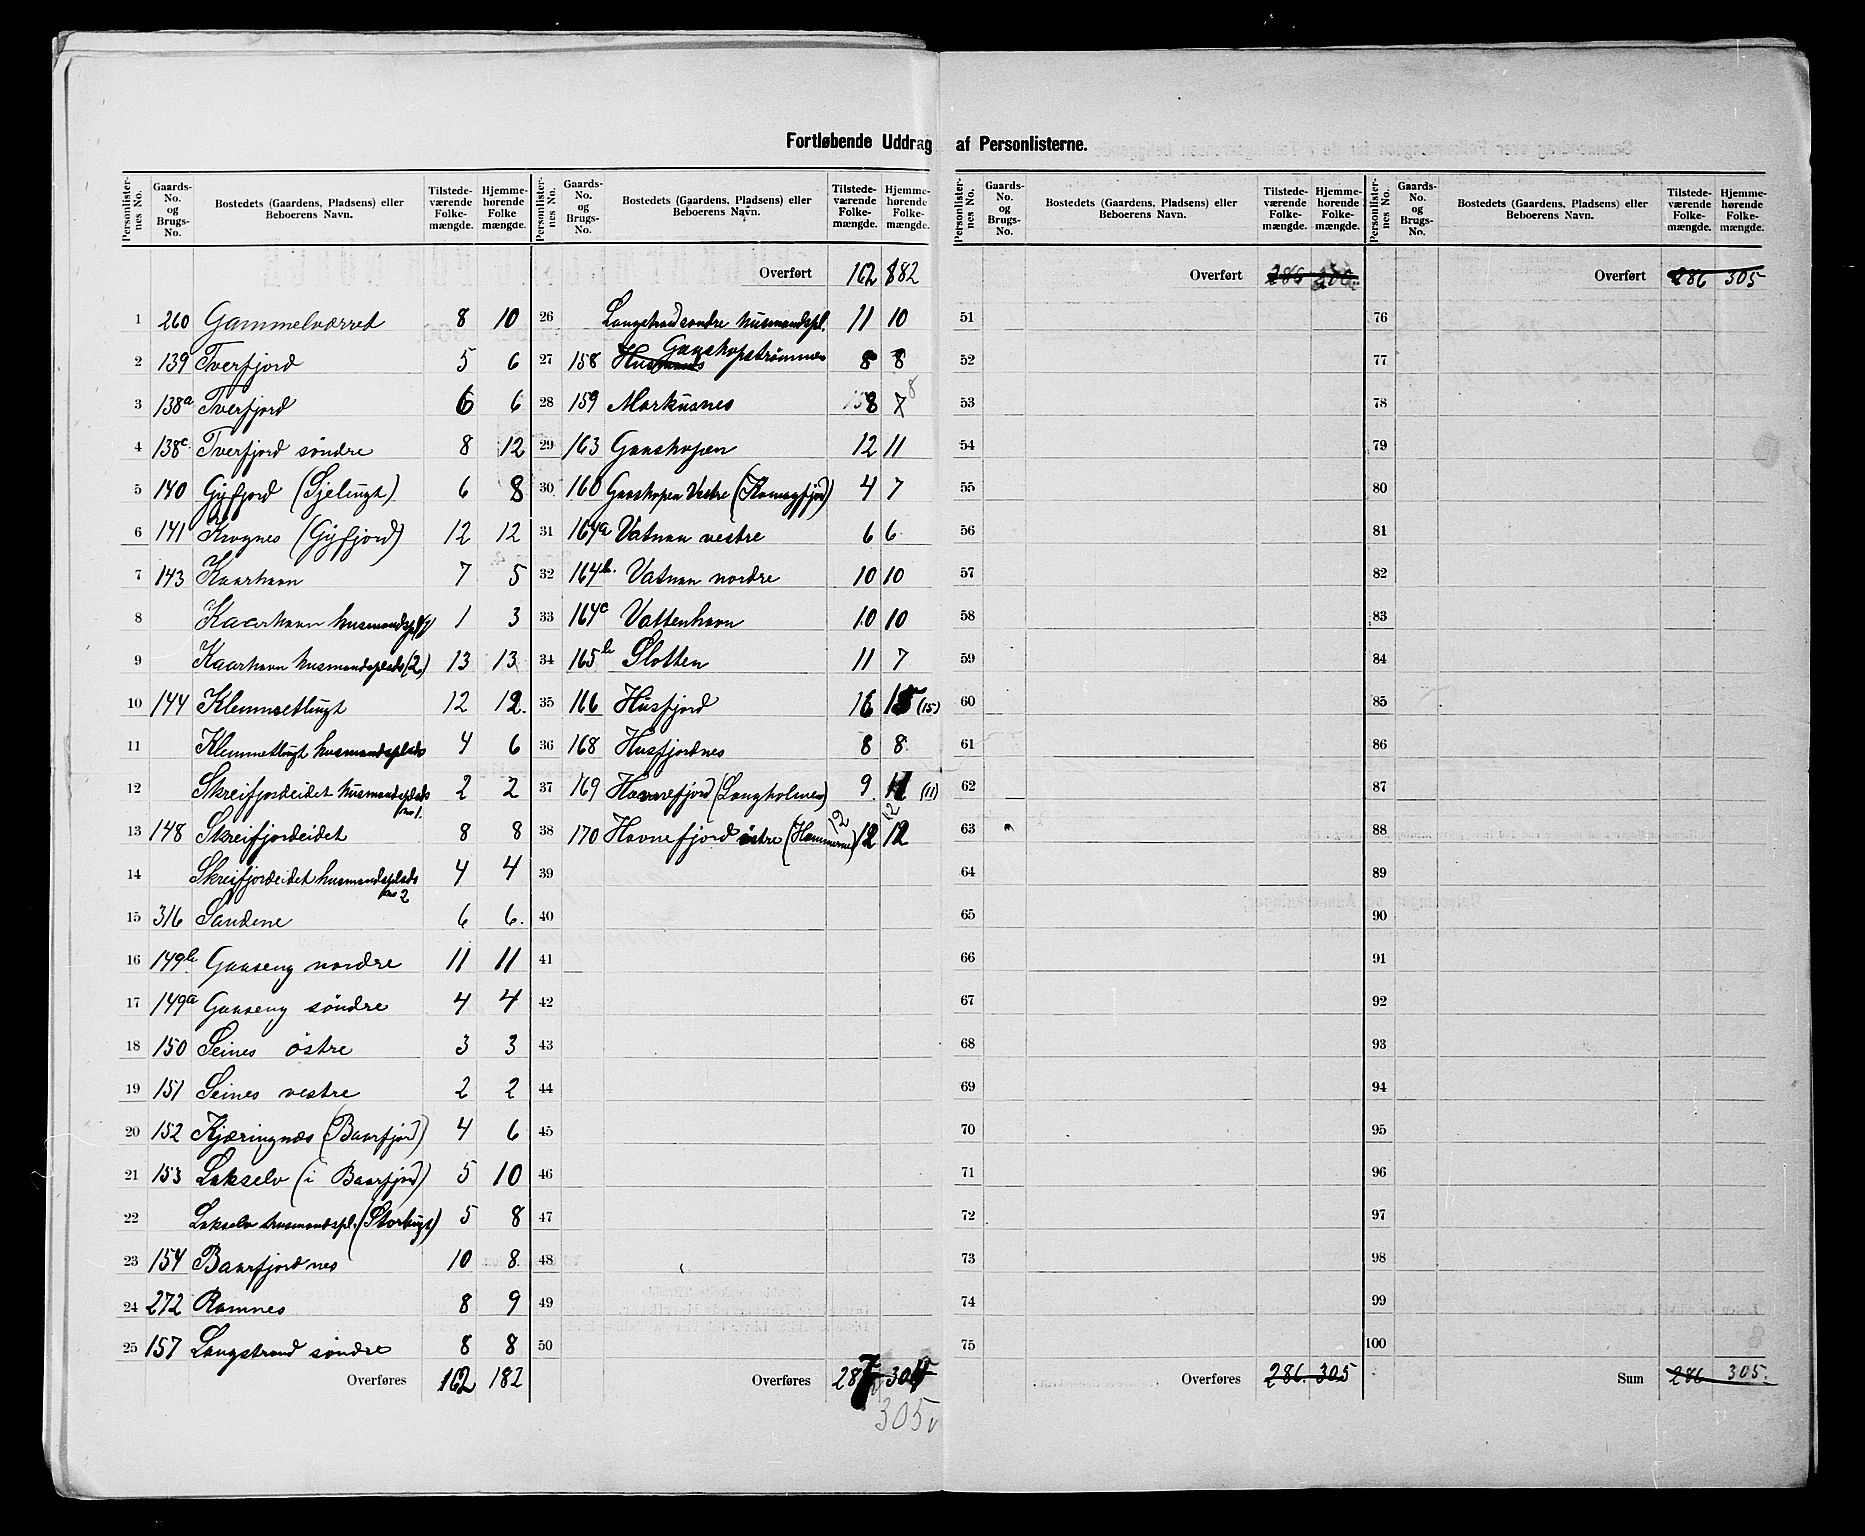 Fortløbende Uddrag af Personlisterne.
Personlister-nes No. Gaards-No. og Brugs-No. Bostedets (Gaardens, Pladsens) eller Beboerens Navn. Tilstede-værende Folke-mængde. Hjemme-hørende Folke mængde.
1 260 Gammelværret 8 10
2 139 Tverfjord 5 6
3 138a Tverfjord 6 6
4 138c Tverfjord söndre 8 12
5 140 Gyfjord (Sjelugt) 6 8
6 141 Krognes (Gyfjord) 12 12
7 143 Kaarhavn 7 5
8 Kaarhavn husmandspl. 1 3
9 Kaarhavn husmandsplads (2) 13 13
10 144 Klemmetlugt 12 12.
11 Klemmetlugt husmandsplads 4 6
12 Skreifjordeidet husmandsplads no 1. 2 2
13 148 Skreifjordeidet 8 8
14 Skreifjordeidet husmandsplads no 2 4 4
15 316 Sandene 6 6.
16 149b Gaaseng nordre 11 11
17 149a Gaaseng söndre 4 4
18 150 Seines östre 3 3
19 151 Seines vestre 2 2
20 152 Kjæringnæs (Baarfjord) 4 6
21 153 Lakselv (i Baarfjord) 5 10
22 Lakselv husmandspl. (Storlugt) 5 8
23 154 Baarfjordnes 10 8.
24 272 Ramnes 8 9
25 157 Langstrand söndre 8 8
Overføres 162 182
Personlister-nes No. Gaards-No. og Brugs-No. Bostedets (Gaardens, Pladsens) eller Beboerens Navn. Tilstede-værende Folke-mængde. Hjemme-hørende Folke-mængde.
Overført 162 182
26 Langstrand söndre husmandspl. 11 10
27 158 Husmands Gaashopstrømmen 8 8
28 159 Markusnes 8 7 8
29 163 Gaashopen 12 11
30 160 Gaashopen Vestre (Komagfjord) 4 7
31 164a Vatnan vestre 6 6
32 164b. Vatnan nordre 10 10
33 164c Vattenhavn 10 10
34 165b Slotten 11 7
35 166 Husfjord 16 15 (15)
36 168 Husfjordnes 8 8
37 169 Havnefjord (Langholmen) 9. 11 (11)
38 170 Havnefjord östre (Hammerne) 12 12 12 12
39
40
41
42
43
44
45
46
47
48
49
50
Overføres 287 305
305
Personlister-nes No. Gaards-No. og Brugs-No. Bostedets (Gaardens, Pladsens) eller Beboerens Navn. Tilstede-værende Folke-mængde. Hjemme-hørende Folke-mængde.
Overført 286
51
52
53
54
55
56
57
58
59
60
61
62
63
64
65
66
67
68
69
70
71
72
73
74
75
Overføres 286. 305
Personlister-nes No. Gaards-No. og Brugs-No. Bostedets (Gaardens, Pladsens) eller Beboerens Navn. Tilstede-værende Folke-mængde. Hjemme-hørende Folke-mængde.
Overført 286 305
76
77
78
79
80
81
82
83
84
85
86
87
88
89
90
91
92
93
94
95
96
97
98
99
100
Sum 286 305.